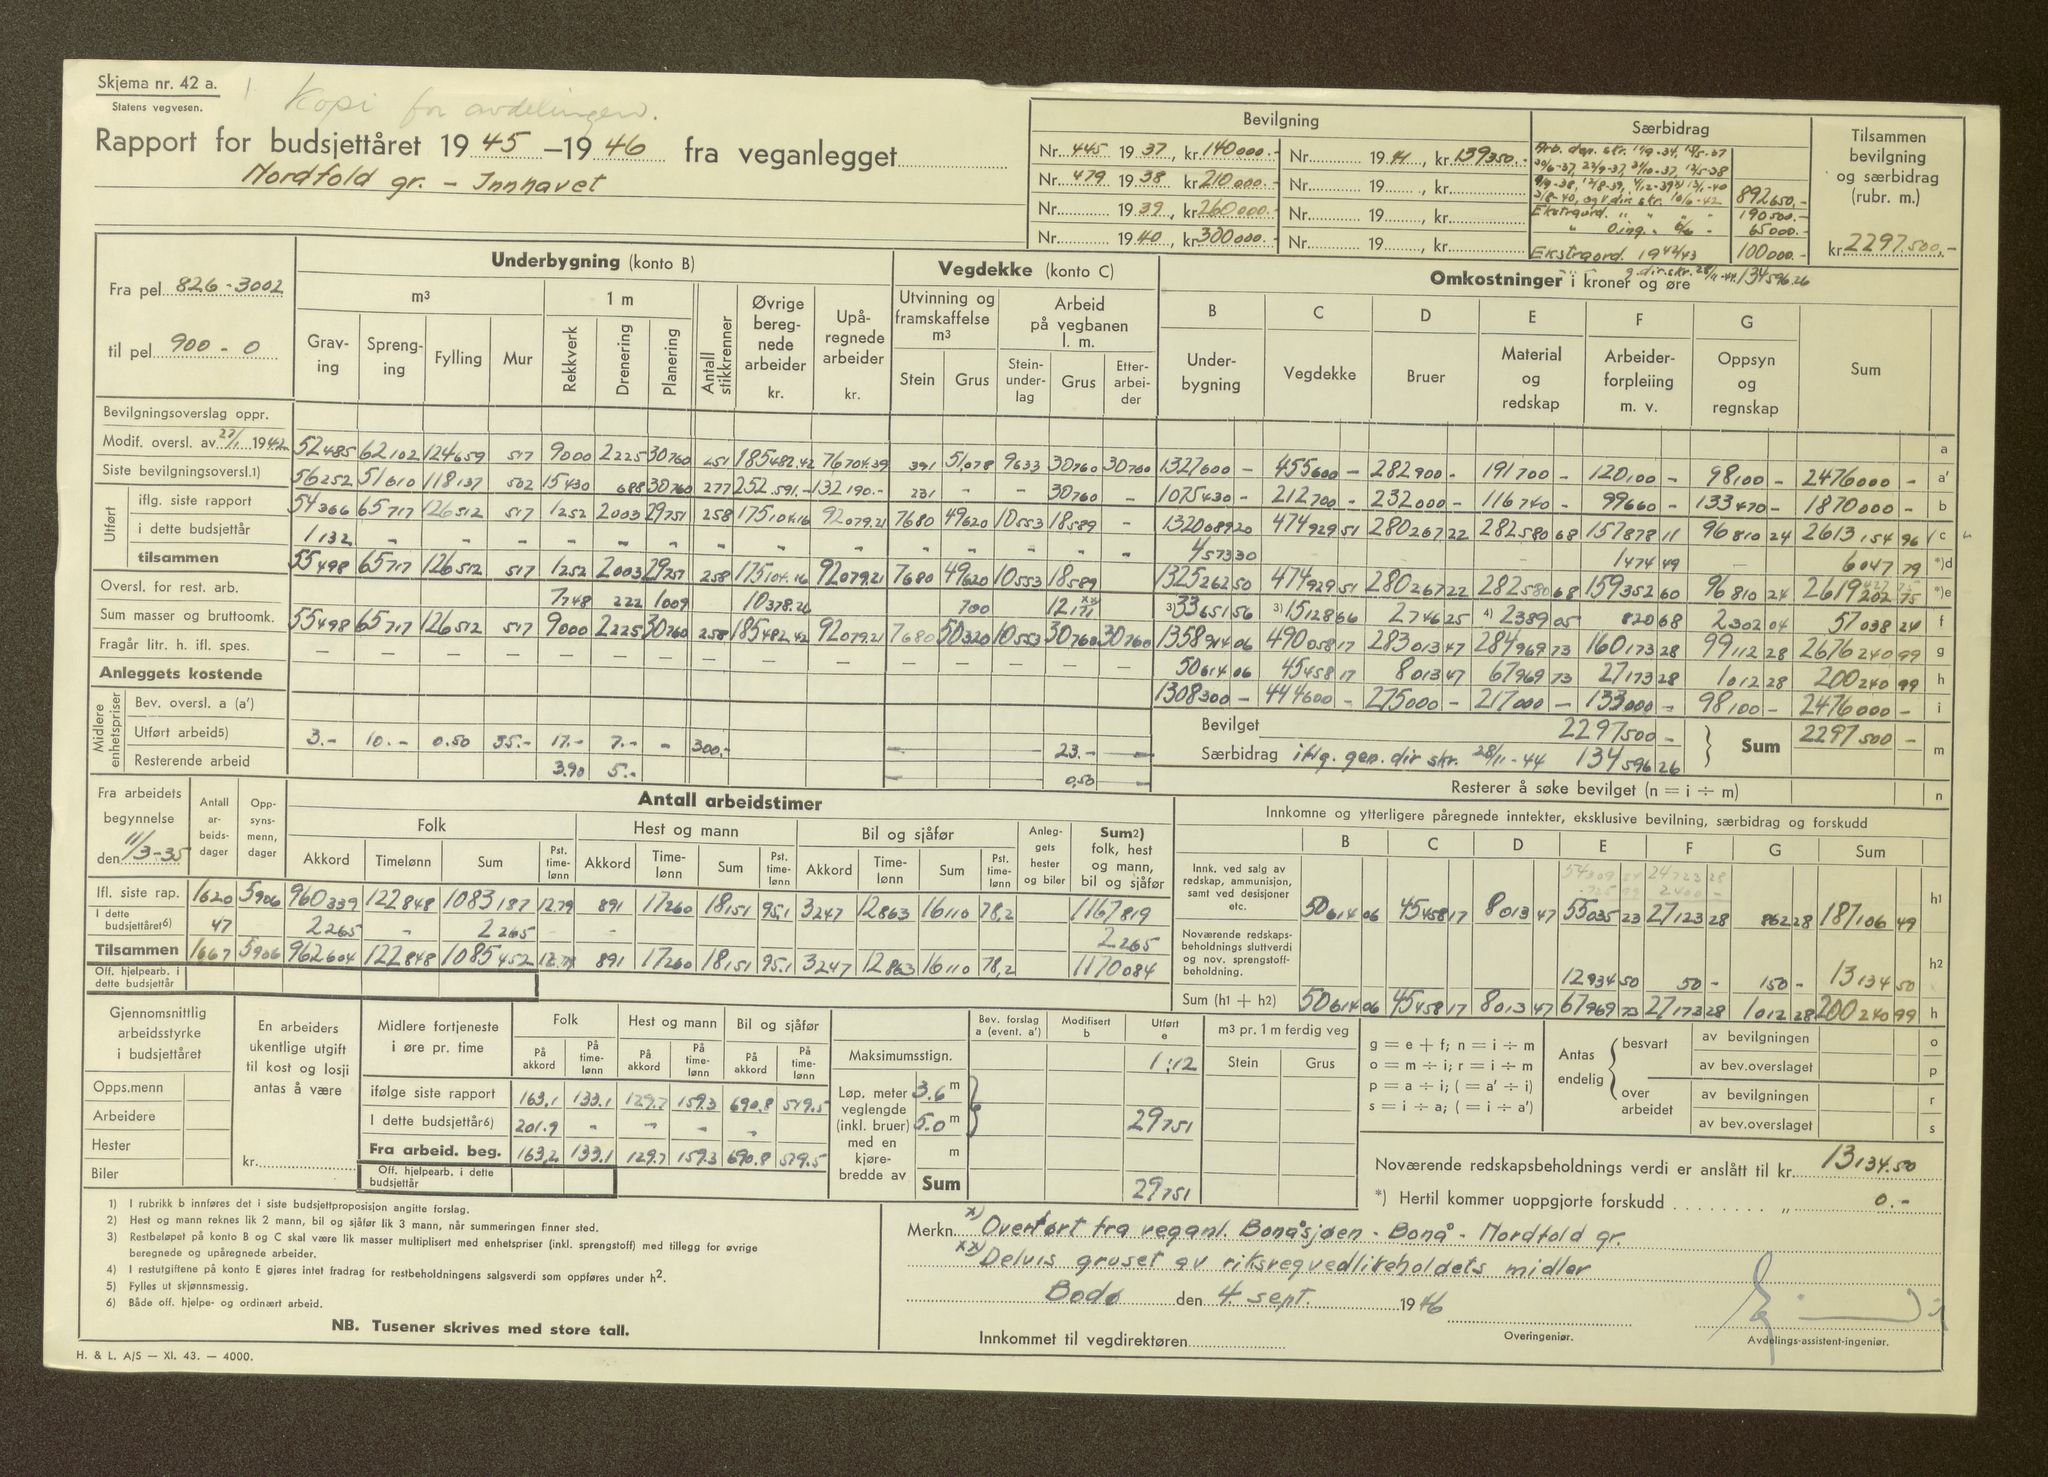 Skjema nr. 42 a.
Statens vegvesen.
Kopi for avdelingen.
Rapport for budsjettåret 1945 –1946 fra veganlegget
Nordfold gr. – Innhavet
Bevilgning
Nr. 445 1937, kr 140000.-
Nr. 479 1938, kr 210000.-
Nr. 1939, kr 260000.-
Nr. 1940, kr 300000.-
Nr. 1941, kr 139350.-
Nr. 19 , kr
Nr. 19 , kr
Nr. 19 , kr
Særbidrag
Arb. dep. skr.
892650,-
Ekstraord. " " " " 190500.-
65000.-
Ekstraord. 1942/43 100000.-
g. dir. skr. 28/11-44. 134596.26
Tilsammen bevilgning og særbidrag (rubr. m.)
kr 2297500,-
Fra pel 826 - 3002
til pel 900 - 0
Underbygning (konto B)
m³
1 m
Grav-ing
Spreng-ing
Fylling
Mur
Rekkverk
Drenering
Planering
Antall stikkrenner
Øvrige beregnede arbeider kr.
Upåregnede arbeider kr.
Vegdekke (konto C)
Utvinning og framskaffelse m³
Stein Grus
Arbeid på vegbanen l. m.
Stein-underlag Grus Etter-arbeider
Omkostninger i kroner og øre
B Under-bygning
C Vegdekke
D Bruer
E Material og redskap
F Arbeider-forpleiing m. v.
G Oppsyn og regnskap
Sum
Bevilgningsoverslag oppr. a
Modif. oversl. av 22/1 1942 52485 62102 124659 517 9000 2225 30760 251 185482.42 76704.39 391 51078 9633 30760 30760 1327600 - 455600 - 282900 - 191700 - 120100 - 98100 - 2476000 - a'
Siste bevilgningsoversl.1) 56252 51610 118137 502 15430 688 30760 277 252.591.- 132190.- 231 - - 30760 - 1075430 - 212700 - 232000 - 116740 - 99660 - 133470 - 1870000 - b
Utført
iflg. siste rapport 54366 65717 126512 517 1252 2003 29751 258 175104.16 92079.21 7680 49620 10553 18589 - 1320689 20 474929 51 280267 22 282580 68 157878 11 96810 24 2613154 96 c
i dette budsjettår 1132 - - - - - - - - - - - - - - 4573 30 1474 49 - 6047 79 *)d
tilsammen 55498 65717 126512 517 1252 2003 29751 258 175104.16 92079.21 7680 49620 10553 18589 1325262 50 474929 51 280267 22 282580 68 159352 60 96810 24 2619202 75 *)e
Oversl. for rest. arb. 7748 222 1009 10378.26 700 12171 xx 3)33651 56 3)15128 66 2746 25 4) 2389 05 820 68 2302 04 57038 24 f
Sum masser og bruttoomk. 55498 65717 126512 517 9000 2225 30760 258 185482.42 92079.21 7680 50320 10553 30760 30760 1358914 06 490058 17 283013 47 284969 73 160173 28 99112 28 2676240 99 g
Fragår litr. h. ifl. spes. - - - - - - - - - - - - - - - 50614 06 45458 17 8013 47 67969 73 27173 28 1012 28 200240 99 h
Anleggets kostende 1308300 - 444600 - 275000 - 217000 - 133000 - 98100 - 2476000 - i
Midlere enhetspriser
Bev. oversl. a (a')
Utført arbeid5) 3.- 10.- 0.50 35.- 17.- 7.- - 300.- 23.-
Resterende arbeid 3.90 5.- 0,50
Bevilget 2297500 -
Særbidrag iflg. gen. dir skr. 28/11-44 134596 26
Sum 2297500 - m
Resterer å søke bevilget (n = i ÷ m) n
Fra arbeidets begynnelse
den 11/3-35
Antall arbeidsdager
Oppsynsmenn, dager
Antall arbeidstimer
Folk
Akkord Timelønn Sum Pst. timelønn
Hest og mann
Akkord Timelønn Sum Pst. timelønn
Bil og sjåfør
Akkord Timelønn Sum Pst. timelønn
Anleggets hester og biler
Sum2) folk, hest og mann, bil og sjåfør
Ifl. siste rap. 1620 5906 960339 122848 1083187 12.79 891 17260 18151 95.1 3247 12863 16110 78,2 1167819
I dette budsjettåret6) 47 2265 - 2265 2265
Tilsammen 1667 5906 962604 122848 1085452 891 17260 18151 95.1 3247 12863 16110 78,2 1170084
Off. hjelpearb. i dette budsjettår
Innkomne og ytterligere påregnede inntekter, eksklusive bevilning, særbidrag og forskudd
B C D E F G Sum
Innk. ved salg av redskap, ammunisjon, samt ved desisjoner etc. 50614 06 45458 17 8013 47 55035 23 27123 28 862 28 187106 49 h1
Noværende redskaps-beholdnings sluttverdi og nov. sprengstoff-beholdning. 12934 50 50 - 150 - 13134 50 h2
Sum (h1 + h2) 50614 06 45458 17 8013 47 67969 73 27173 28 1012 28 200240 99 h
Gjennomsnittlig arbeidsstyrke i budsjettåret
Opps.menn
Arbeidere
Hester
Biler
En arbeiders ukentlige utgift til kost og losji antas å være
kr.
Midlere fortjeneste i øre pr. time
Folk Hest og mann Bil og sjåfør
På akkord På timelønn På akkord På timelønn På akkord På timelønn
ifølge siste rapport 163,1 133.1 129.7 159.3 690.8 579.5
I dette budsjettår6) 201.9 - - - - -
Fra arbeid. beg. 163,2 133.1 129.7 159.3 690.8 579.5
Off. hjelpearb. i dette budsjettår
Bev. forslag a (event. a') Modifisert b Utført e
Maksimumsstign. 1:12
Løp. meter veglengde (inkl. bruer) med en kjøre-bredde av
3.6 m
5.0 m 29751
m
Sum 29751
m3 pr. 1 m ferdig veg
Stein Grus
g = e + f; n = i ÷ m
o = m ÷ i; r = i ÷ m
p = a ÷ i; ( = a' ÷ i)
s = i ÷ a; ( = i ÷ a')
Antas endelig
besvart av bevilgningen o
av bev.overslaget p
over arbeidet av bevilgningen r
av bev.overslaget s
Noværende redskapsbeholdnings verdi er anslått til kr. 13134.50
*) Hertil kommer uoppgjorte forskudd „ 0.-
1) I rubrikk b innføres det i siste budsjettproposisjon angitte forslag.
2) Hest og mann reknes lik 2 mann, bil og sjåfør lik 3 mann, når summeringen finner sted.
3) Restbeløpet på konto B og C skal være lik masser multiplisert med enhetspriser (inkl. sprengstoff) med tillegg for øvrige
beregnede og upåregnede arbeider.
4) I restutgiftene på konto E gjøres intet fradrag for restbeholdningens salgsverdi som oppføres under h2.
5) Fylles ut skjønnsmessig.
6) Både off. hjelpe- og ordinært arbeid.
NB. Tusener skrives med store tall.
Merkn. x) Overført fra veganl. Bonåsjøen - Bonå - Nordfold gr.
xx) Delvis gruset av riksvegvedlikeholdets midler
Bodø den 4 sept. 1946
Innkommet til vegdirektøren
Overingeniør.
Avdelings-assistent-ingeniør.
H. & L. A/S — XI. 43. — 4000.